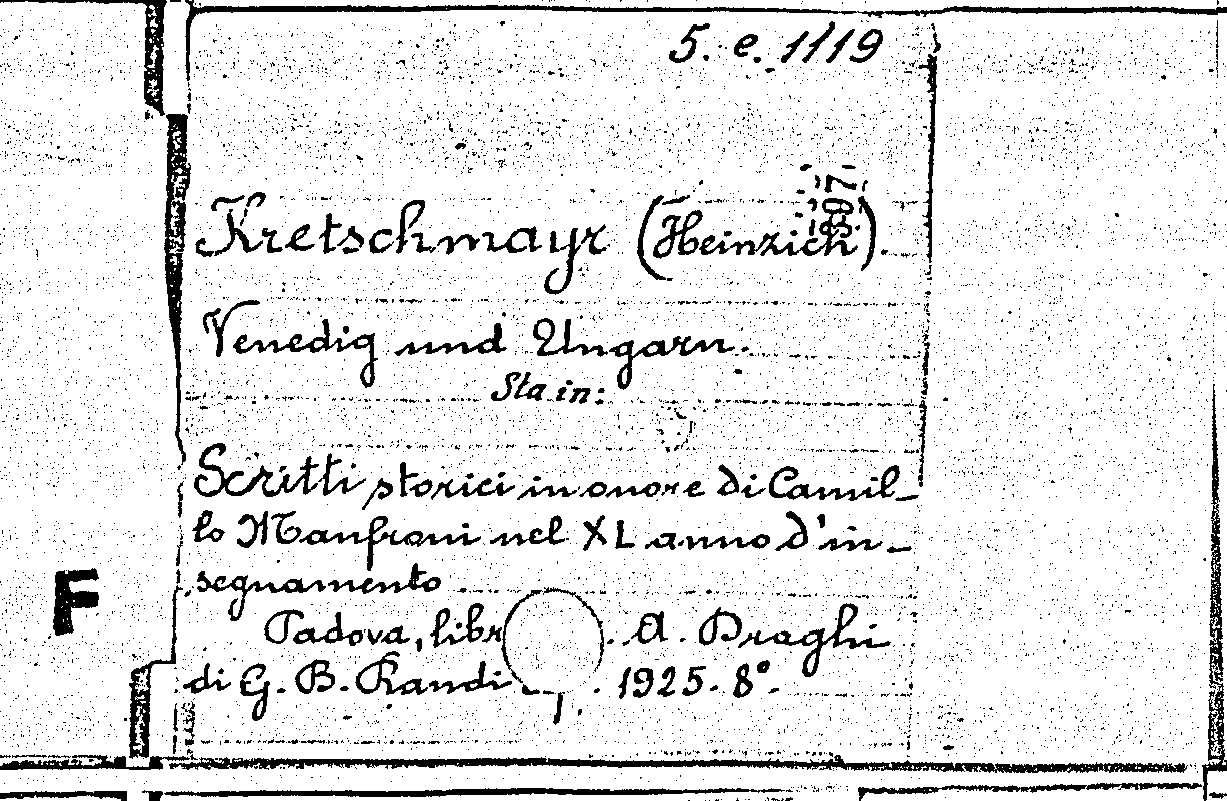 5. e. 1119
Kretschmayr (Heinrich).
Venedig und Ungarn.
Sta in:
Scritti storici in onore di Camil-
lo Manfroni nel XL anno d'in-
segnamento
Padova, libr . A. Draghi
di G. B. Randi . 1925. 8°.
F